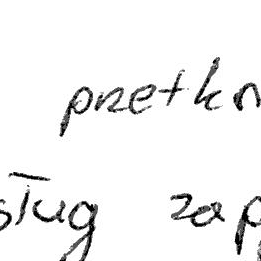 przetkn
sług zap